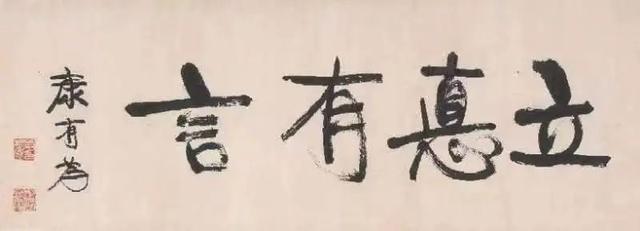 立悳有言
康有為